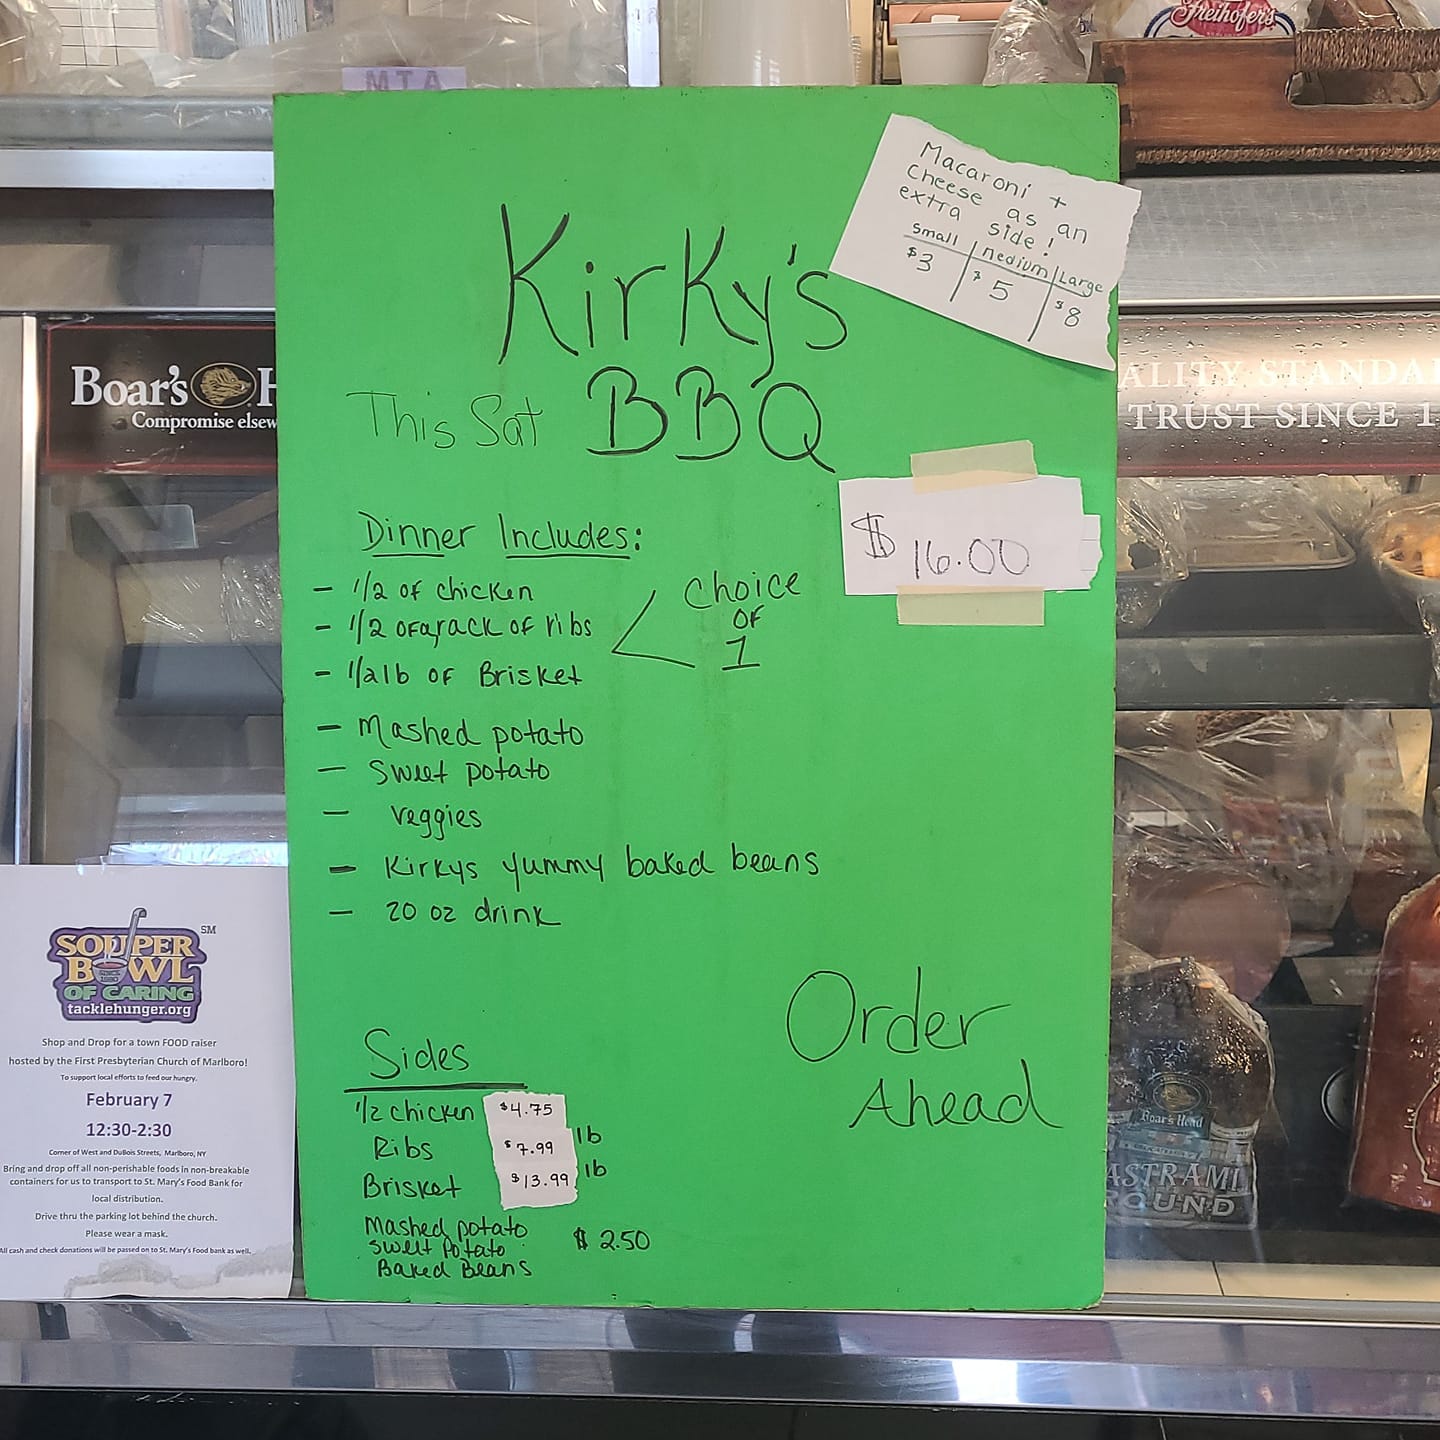 MTA
Freihofer's
Macaroni +
Cheese as an
extra side!
Small | Medium | Large
$3 | $5 | $8
Kirky's
This Sat BBQ
$16.00
Dinner Includes:
- 1/2 of chicken
- 1/2 of a rack of ribs
- 1/2 lb of Brisket
Choice
OF
1
- Mashed potato
- Sweet potato
- Veggies
- Kirkys yummy baked beans
- 20 oz drink
Order
Ahead
Sides
1/2 chicken $4.75
Ribs $7.99 lb
Brisket $13.99 lb
Mashed potato
Sweet Potato $2.50
Baked Beans
Boar's H
Compromise elsew
ALITY STANDA
TRUST SINCE 1
SOUPER SM
BOWL
SINCE
1990
OF CARING
tacklehunger.org
Shop and Drop for a town FOOD raiser
hosted by the First Presbyterian Church of Marlboro!
To support local efforts to feed our hungry.
February 7
12:30-2:30
Corner of West and DuBois Streets, Marlboro, NY
Bring and drop off all non-perishable foods in non-breakable
containers for us to transport to St. Mary's Food Bank for
local distribution.
Drive thru the parking lot behind the church.
Please wear a mask.
All cash and check donations will be passed on to St. Mary's Food bank as well.
Boar's Head
ASTRAMI
ROUND